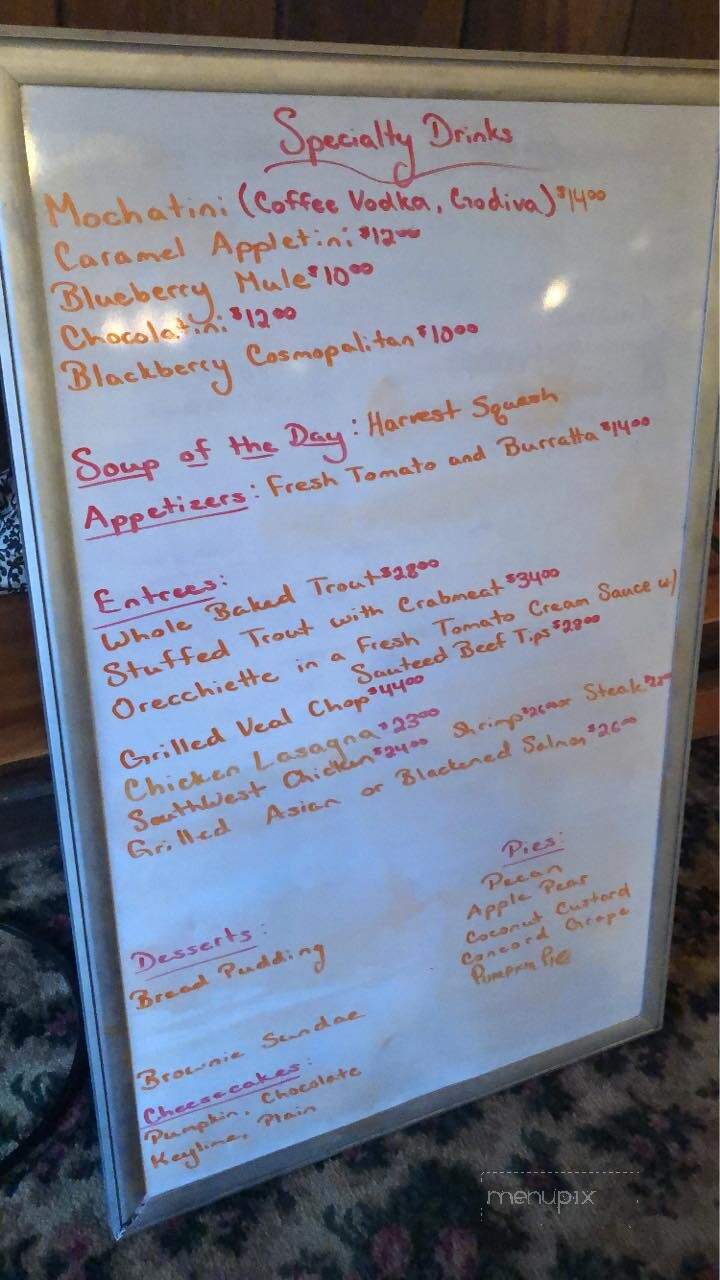 Specialty Drinks
Mochatini (Coffee Vodka, Godiva) $14.00
Caramel Appletini $12.00
Blueberry Mule $10.00
Chocolatini $12.00
Blackberry Cosmopalitan $10.00
Soup of the Day: Harvest Squash
Appetizers: Fresh Tomato and Burratta $14.00
Entrees:
Whole Baked Trout $28.00
Stuffed Trout with Crabmeat $34.00
Orecchiette in a Fresh Tomato Cream Sauce w/
Sauteed Beef Tips $28.00
Grilled Veal Chop $44.00
Chicken Lasagna $23.00
Southwest Chicken $24.00 Shrimp $26.00 or Steak
Grilled Asian or Blackened Salmon $26.00
Desserts:
Bread Pudding
Brownie Sundae
Cheesecakes:
Pumpkin, Chocolate
Keylime, Plain
Pies:
Pecan
Apple Pear
Coconut Custard
Concord Grape
Pumpkin Pie
menupix